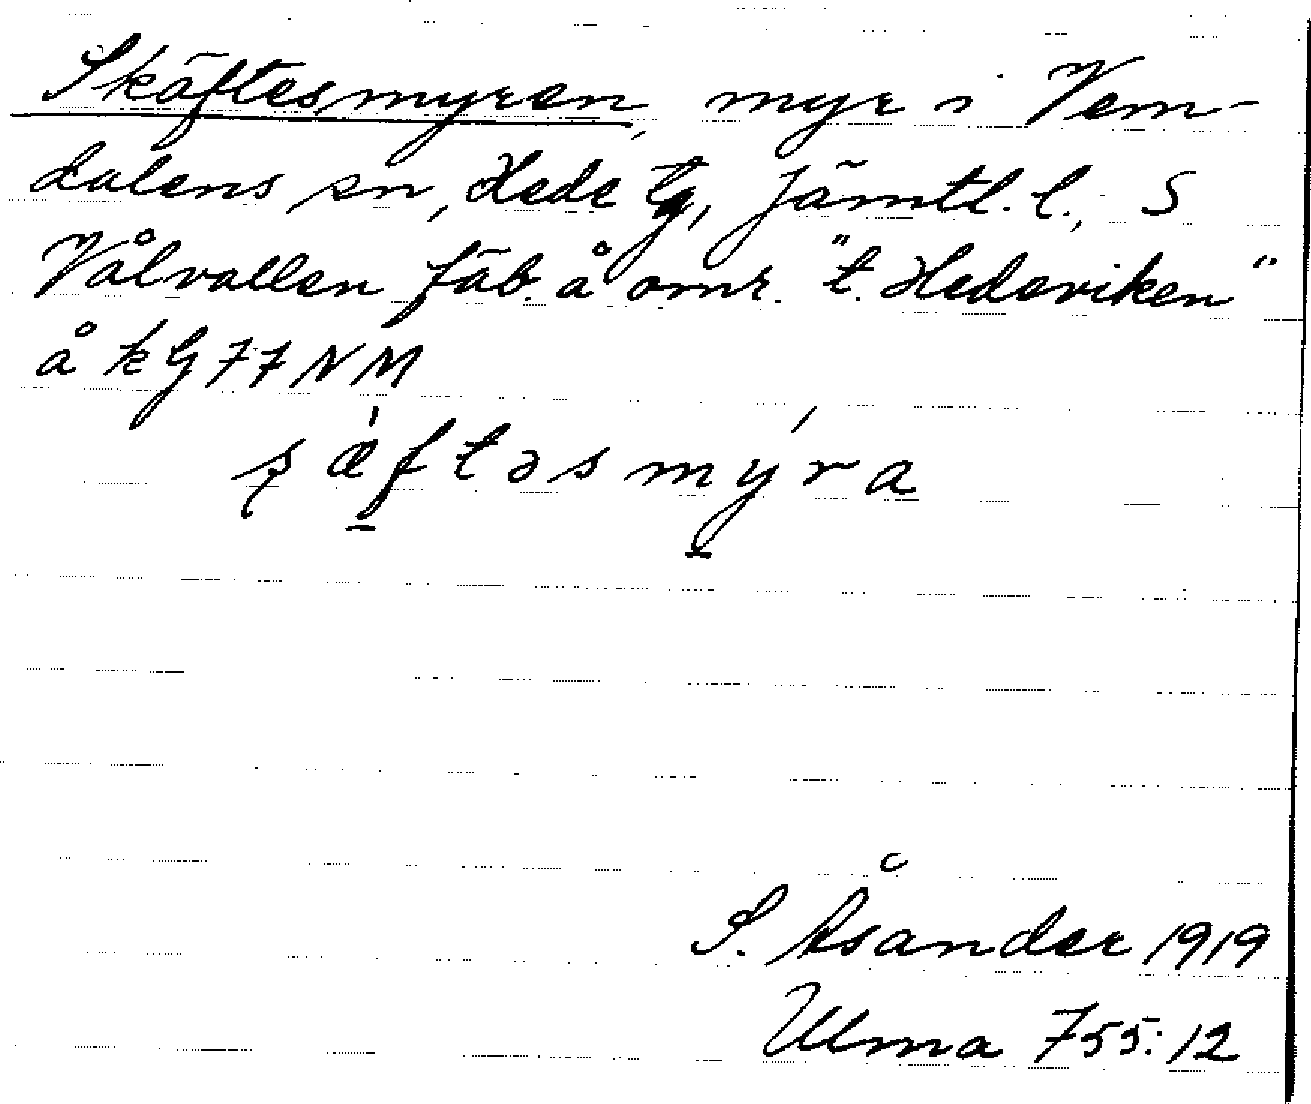 Skäftesmyren, myr i Vem-
dalens sn, Hede tg, Jämtl. l., S
Vålvallen fäb. å omr. "t. Hedeviken"
å kG 77 NM
ʂæ̀ftəsmýra
S. Åsander 1919
Ulma 755:12